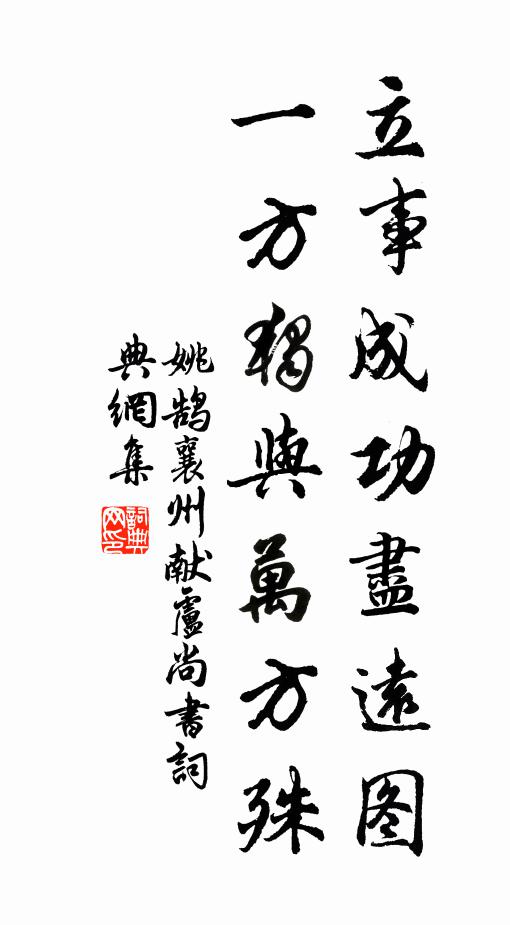 立事成功盡遠图
一方獨與萬方殊
姚鹄襄州献盧尚書詞
典網集
詞典网印